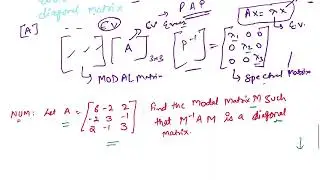 diagonal matrix
P A P
Ax = λx
[A]
C.V
C.V Errors
E.V.
[A]3x3 [P⁻¹] = [λ1 0 0
0 λ2 0
0 0 λ3]
MODAL Matrix
Spectral Matrix
NUM: Let A = [6 -2 2
-2 3 -1
2 -1 3]
Find the Modal Matrix M Such
that M⁻¹AM is a diagonal
matrix.